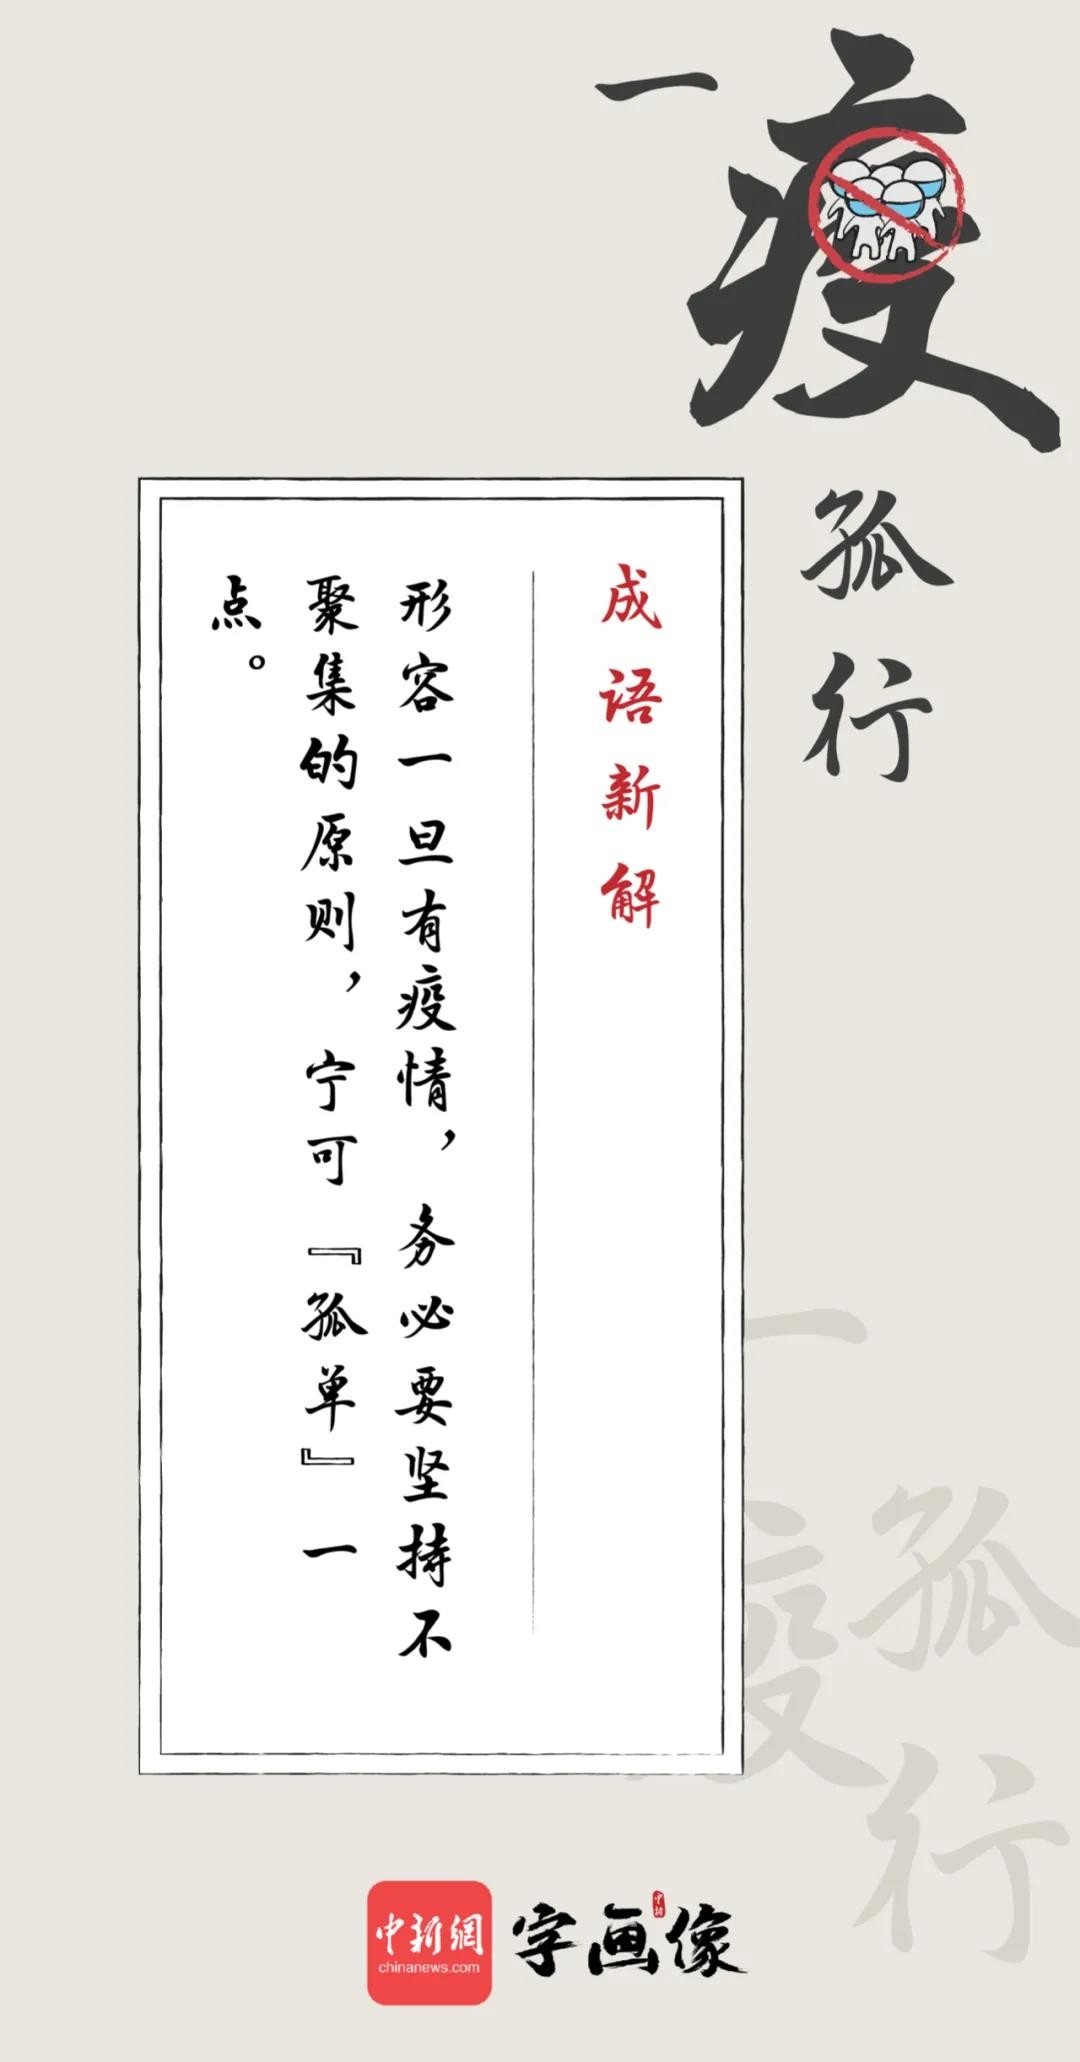 一
疫
孤
行
成语新解
形容一旦有疫情，务必要坚持不
聚集的原则，宁可『孤单』一
点。
一
疫
孤
行
中新網
chinanews.com
字画像